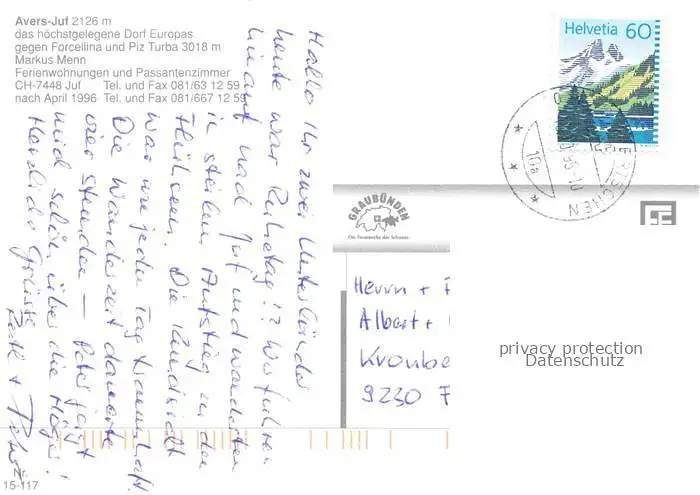 Avers-Juf 2126 m
das höchstgelegene Dorf Europas
gegen Forcellina und Piz Turba 3018 m
Markus Menn
Ferienwohnungen und Passantenzimmer
CH-7448 Juf Tel. und Fax 081/63 12 59
nach April 1996 Tel. und Fax 081/667 12 59
Hallo Ihr zwei Unterländer
heute war Ruhetag!? Wir fuhren
hinauf nach Juf und wanderten
in steilem Aufstieg zu den
Flühseen. Die Rundsicht
war wie jeden Tag traumhaft.
Die Wanderzeit dauerte
vier Stunden – Peter jagt
mich schön über die Höger!
Herzliche Grüsse
+ Peter
15-117
Helvetia 60
10a
GRAUBÜNDEN
Die Ferienecke der Schweiz.
Herrn +
Albert +
Kronbe
9230 F
privacy protection
Datenschutz